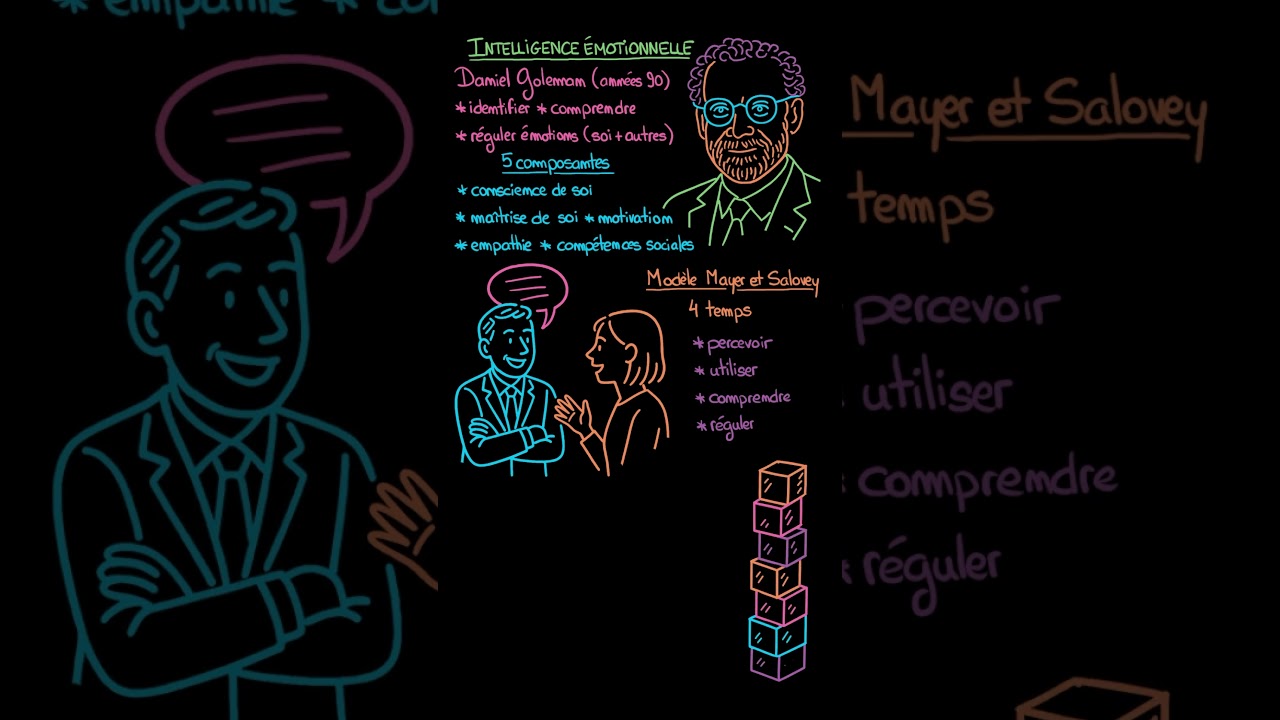 INTELLIGENCE ÉMOTIONNELLE
Daniel Goleman (années 90)
* identifier * comprendre
* réguler émotions (soi + autres)
5 composantes
* conscience de soi
* maîtrise de soi * motivation
* empathie * compétences sociales
Modèle Mayer et Salovey
4 temps
* percevoir
* utiliser
* comprendre
* réguler
* empathie * co
Mayer et Salovey
temps
percevoir
utiliser
comprendre
réguler